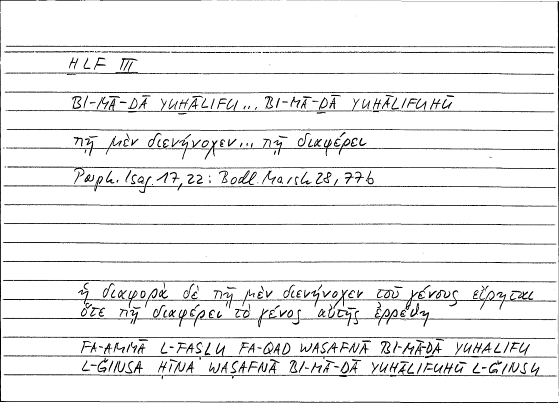 H̱LF III
BI-MĀ-ḎĀ YUH̱ĀLIFU... BI-MĀ-ḎĀ YUH̱ĀLIFUHŪ
πῇ μὲν διενήνοχεν... πῇ διαφέρει
Porph. Isag. 17,22: Bodl. Marsh 28, 77b
ἡ διαφορὰ δὲ πῇ μὲν διενήνοχεν τοῦ γένους εἴρηται
ὅτε πῇ διαφέρει τὸ γένος αὐτῆς ἐρρέθη
FA-AMMĀ L-FAṢLU FA-QAD WAṢAFNĀ BI-MĀ-ḎĀ YUHALIFU
L-ǦINSA ḤĪNA WAṢAFNĀ BI-MĀ-ḎĀ YUH̱ĀLIFUHŪ L-ǦINSU